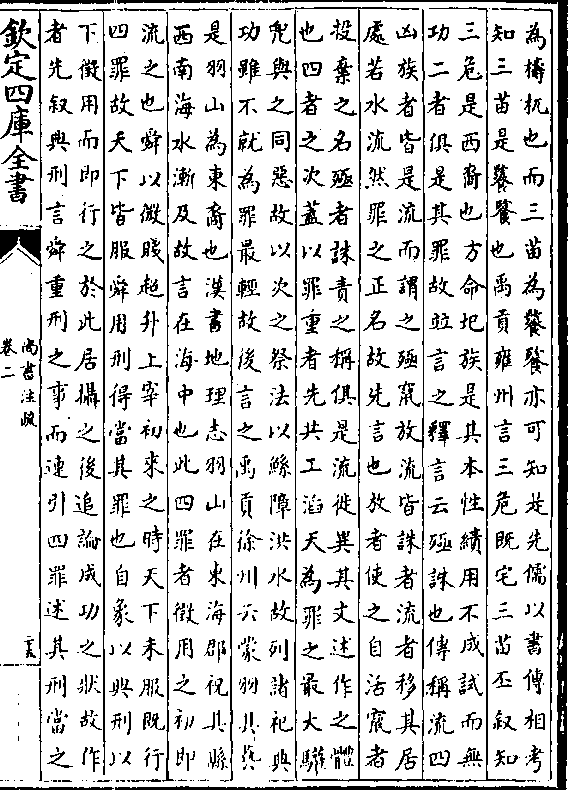 為檮杌也而三苗為饕餮亦可知是先儒以書傳相考
知三苗是饕餮也禹貢雍州言三危既宅三苗丕叙知
三危是西裔也方命圮族是其本性績用不成試而無
功二者俱是其罪故竝言之釋言云殛誅也傳稱流四
凶族者皆是流而謂之殛竄放流皆誅者流者移其居
處若水流然罪之正名故先言也放者使之自活竄者
投棄之名殛者誅責之稱俱是流徙異其文述作之體
也四者之次蓋以罪重者先共工滔天為罪之最大驩
兜與之同惡故以次之祭法以鯀障洪水故列諸祀典
功雖不就為罪最輕故後言之禹貢徐州云蒙羽其藝
是羽山為東裔也漢書地理志羽山在東海郡祝其縣
西南海水漸及故言在海中也此四罪者徵用之初即
流之也舜以微賤超升上宰初來之時天下未服既行
四罪故天下皆服舜用刑得當其罪也自象以典刑以
下徵用而即行之於此居攝之後追論成功之狀故作
者先叙典刑言舜重刑之事而連引四罪述其刑當之
欽定四庫全書
尚書注疏
卷二